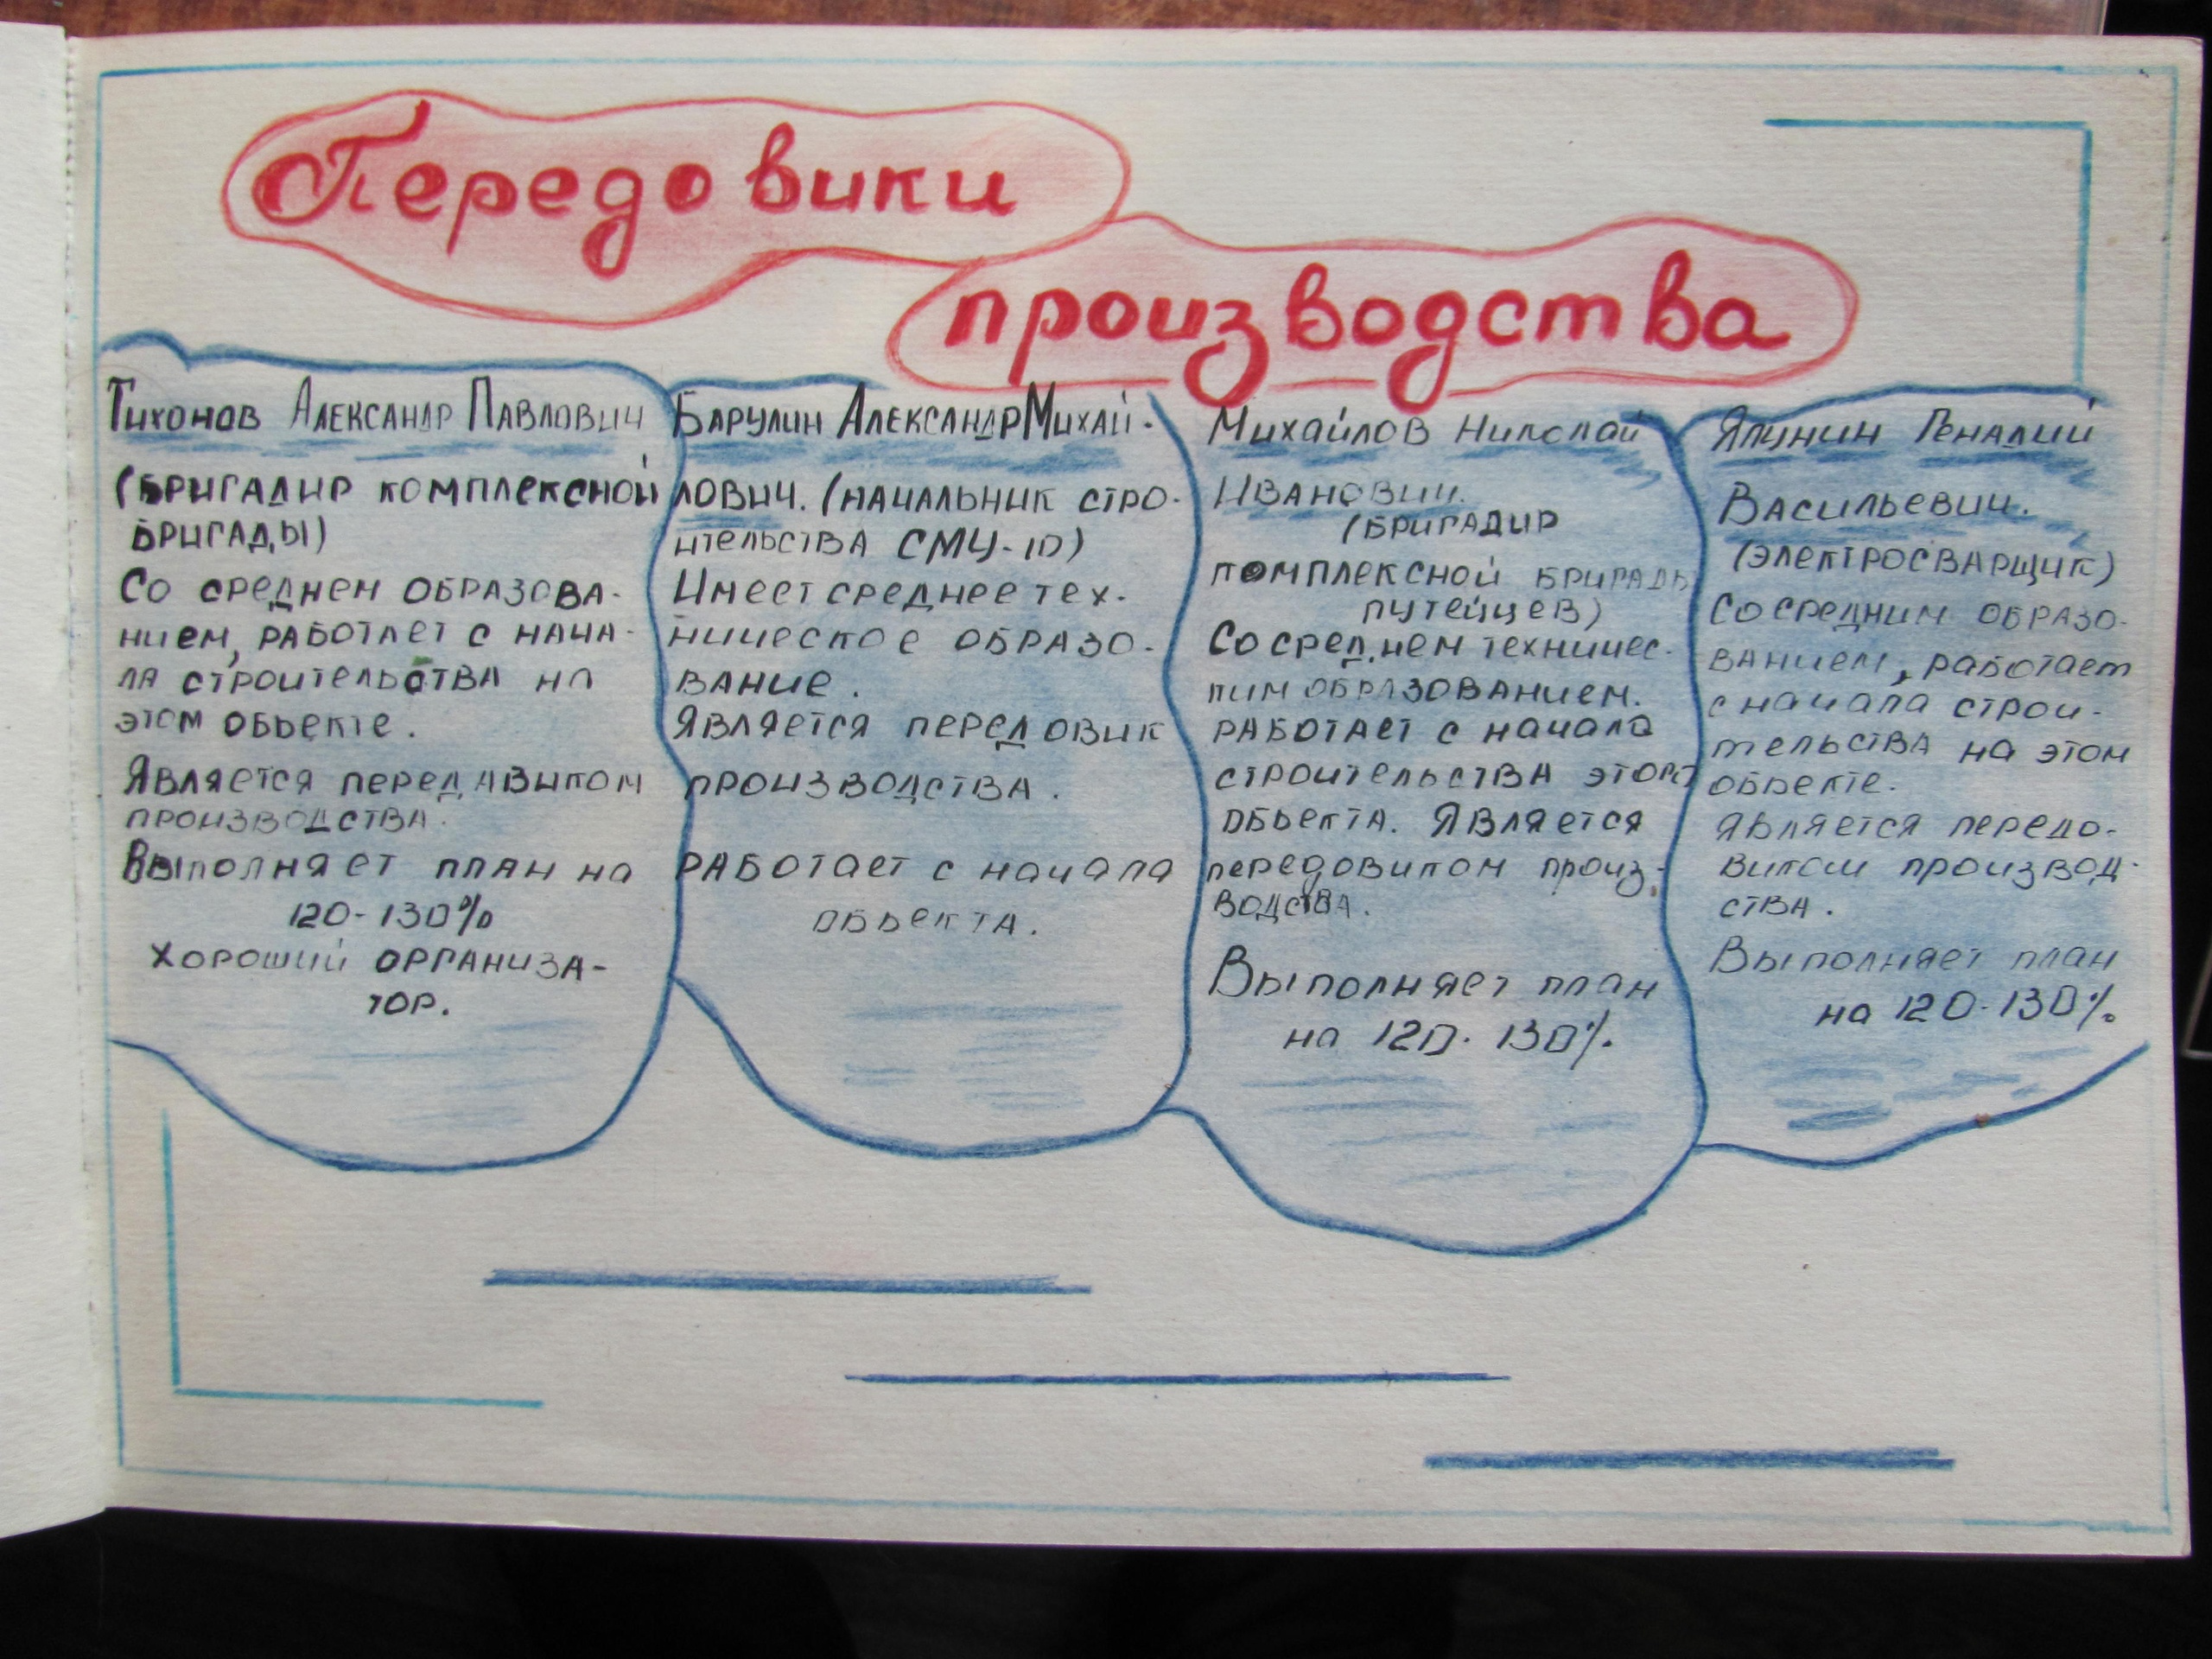 Передовики
производства
Тихонов Александр Павлович
(бригадир комплексной
бригады)
Со среднем образова-
нием, работает с нача-
ла строительства на
этом объекте.
Является передавиком
производства.
Выполняет план на
120-130%
хороший организа-
тор.
Барулин Александр Михай-
лович. (начальник стро-
ительства СМУ-10)
Имеет среднее тех-
ническое образо-
вание.
Является передовик
производства.
работает с начала
объекта.
Михайлов Николай
Иванович.
(бригадир
комплексной бригады
путейцев)
Со среднем техничес-
ким образованием.
работает с начала
строительства этого
объекта. Является
передовиком произ-
водства.
Выполняет план
на 120-130%
Япунин Генадий
Васильевич.
(электросварщик)
Со средним образо-
ванием, работает
с начала строи-
тельства на этом
объекте.
является передо-
виком производ-
ства.
Выполняет план
на 120-130%